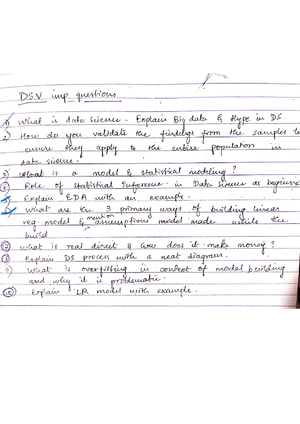 DSV imp questions
1) What is data science. Explain Big data & Hype in DS
2) How do you validate the findings from the samples to
ensure they apply to the entire population in
data science.
3) What is a model & statistical modeling?
4) Role of Statistical Inference in Data Science as beginner
5) Explain EDA with an example.
6) What are the 3 primary ways of building linear
reg. model & mention assumptions model made while the
build
7) what is real direct & how does it make money?
8) Explain DS process with a neat diagram.
9) What is overfitting in context of model building
and why it is problematic.
10) Explain LR model with example.